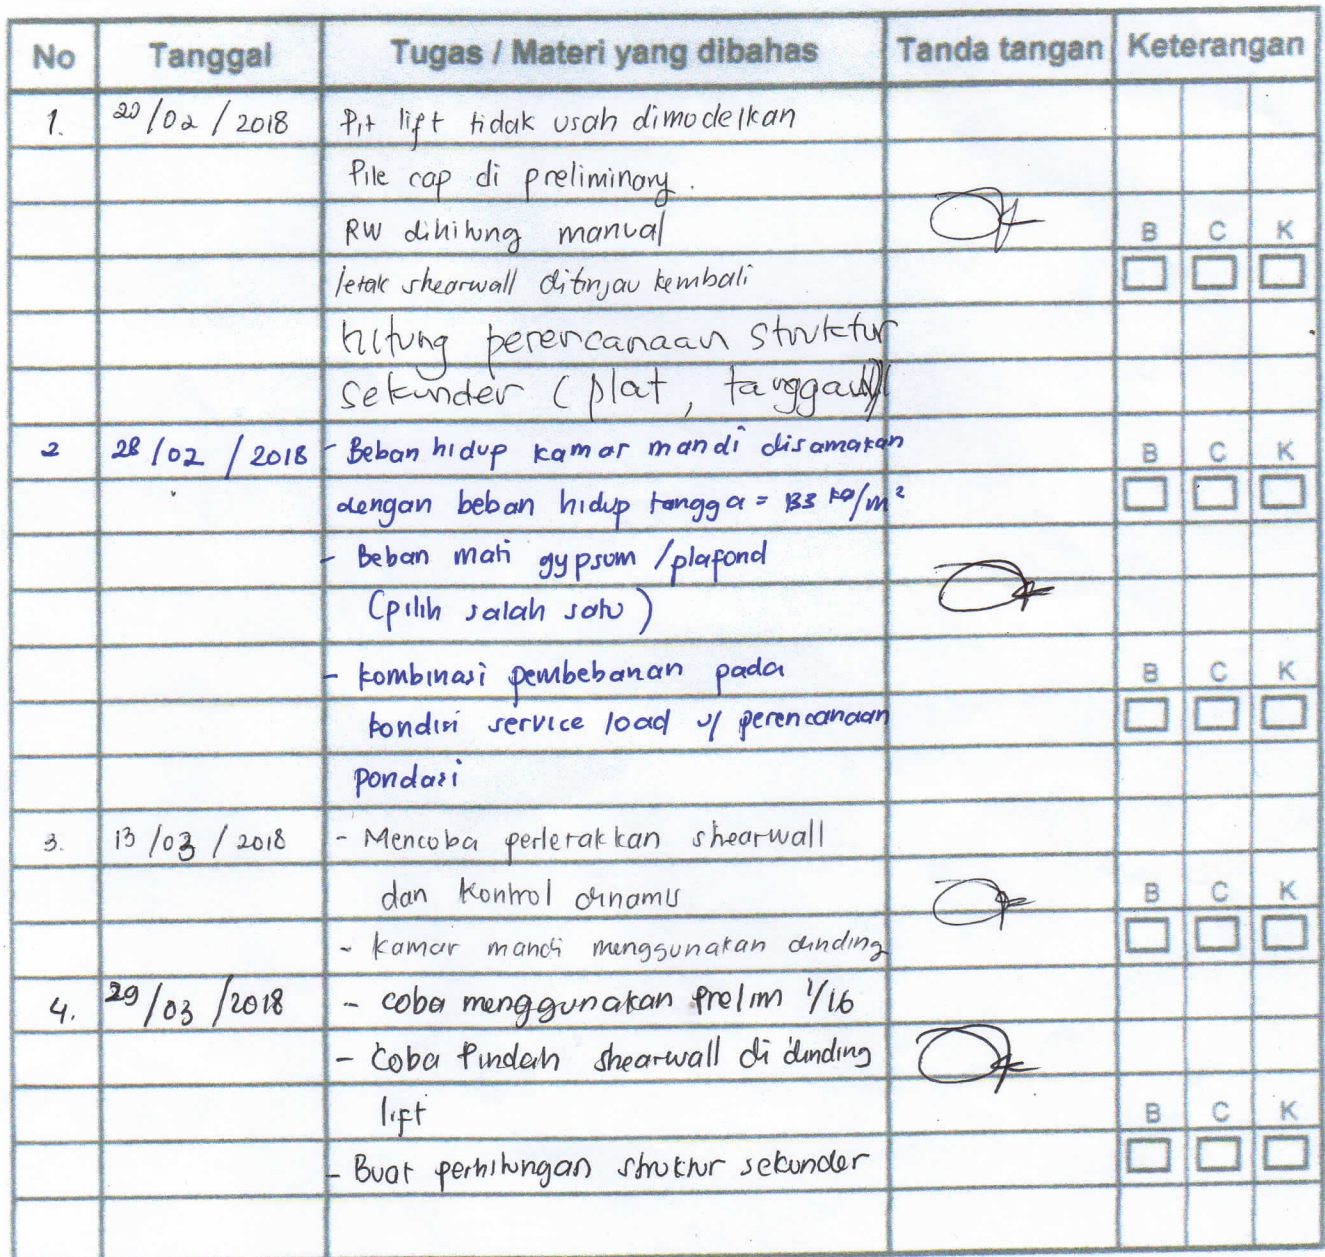 No Tanggal Tugas / Materi yang dibahas Tanda tangan Keterangan
1. 20/02/2018 Pit lift tidak usah dimodelkan
Pile cap di preliminary.
RW dihitung manual B C K
letak shearwall ditinjau kembali
hitung perencanaan struktur
sekunder (plat, tangga)
2 28/02/2018 - Beban hidup kamar mandi disamakan B C K
dengan beban hidup tangga = 133 kg/m²
- Beban mati gypsum/plafond
(pilih salah satu)
- kombinasi pembebanan pada B C K
kondisi service load u/ perencanaan
pondasi
3. 13/03/2018 - Mencoba perletakkan shearwall
dan kontrol dinamis B C K
- kamar mandi menggunakan dinding
4. 29/03/2018 - coba menggunakan Prelim 1/16
- Coba Pindah shearwall di dinding
lift B C K
- Buat perhitungan struktur sekunder